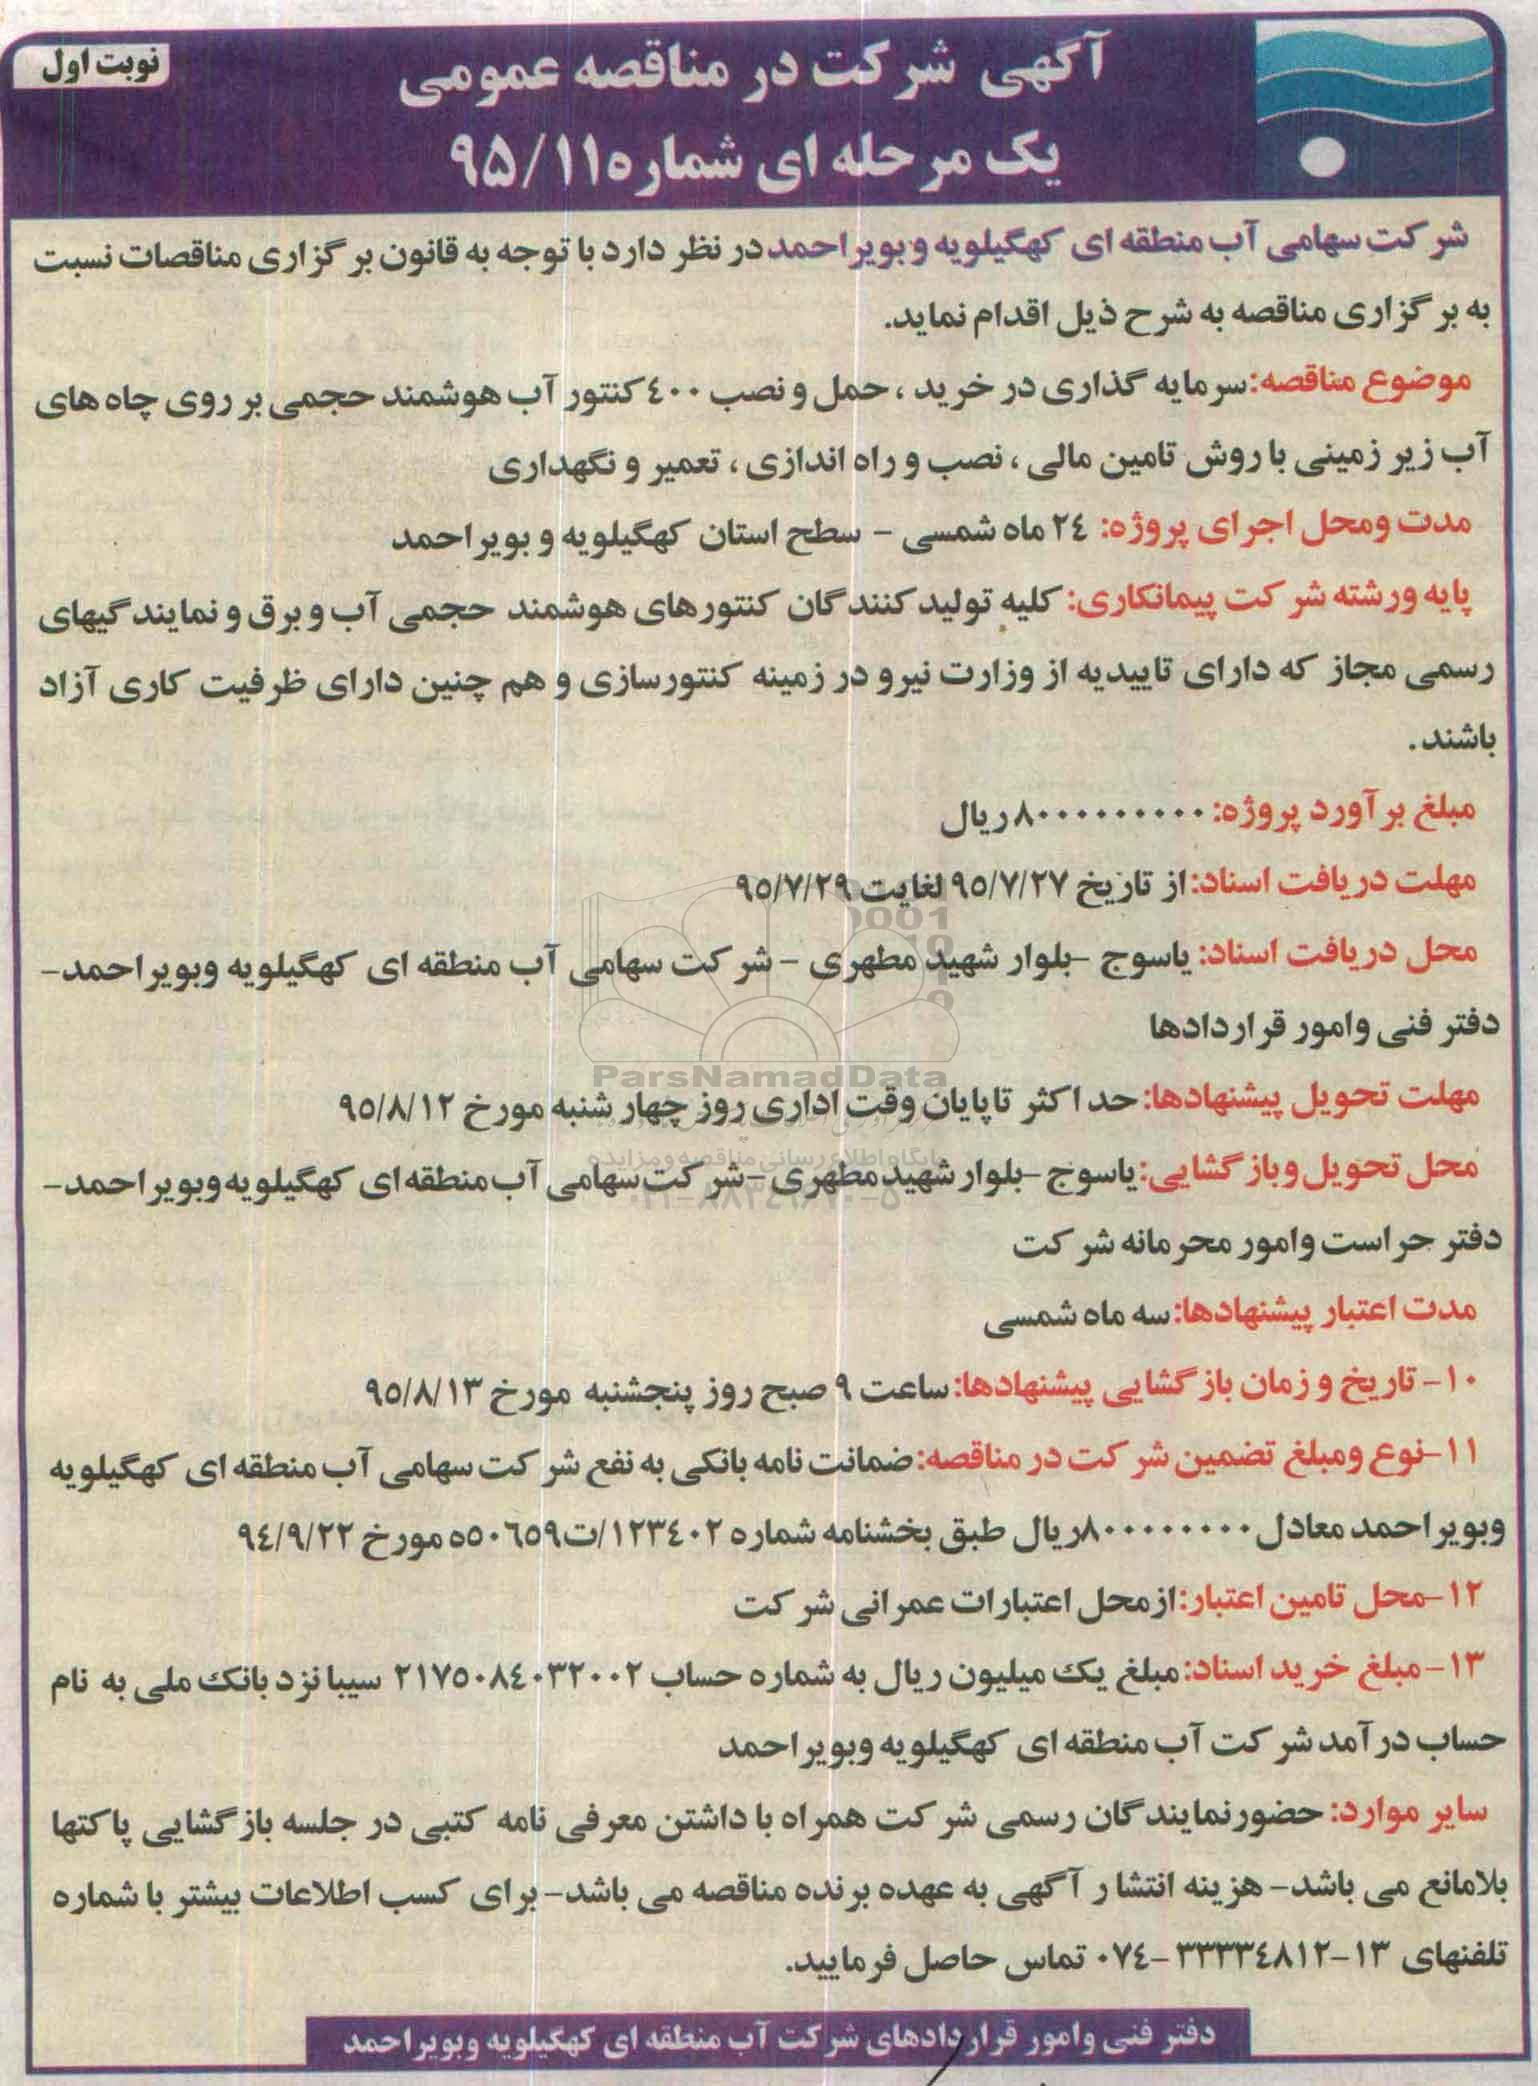 نوبت اول
آگهی شرکت در مناقصه عمومی
یک مرحله ای شماره ۹۵/۱۱
شرکت سهامی آب منطقه ای کهگیلویه و بویراحمد در نظر دارد با توجه به قانون برگزاری مناقصات نسبت
به برگزاری مناقصه به شرح ذیل اقدام نماید.
موضوع مناقصه: سرمایه گذاری در خرید ، حمل و نصب ۴۰۰ کنتور آب هوشمند حجمی بر روی چاه های
آب زیر زمینی با روش تامین مالی ، نصب و راه اندازی ، تعمیر و نگهداری
مدت ومحل اجرای پروژه: ۲۴ ماه شمسی - سطح استان کهگیلویه و بویراحمد
پایه ورشته شرکت پیمانکاری: کلیه تولیدکنندگان کنتورهای هوشمند حجمی آب و برق و نمایندگیهای
رسمی مجاز که دارای تاییدیه از وزارت نیرو در زمینه کنتورسازی و هم چنین دارای ظرفیت کاری آزاد
باشند.
مبلغ برآورد پروژه: ۸۰۰۰۰۰۰۰۰۰۰ ریال
مهلت دریافت اسناد: از تاریخ ۹۵/۷/۲۷ لغایت ۹۵/۷/۲۹
محل دریافت اسناد: یاسوج -بلوار شهید مطهری - شرکت سهامی آب منطقه ای کهگیلویه وبویراحمد-
دفتر فنی وامور قراردادها
ParsNamadData
مهلت تحویل پیشنهادها: حداکثر تاپایان وقت اداری روز چهارشنبه مورخ ۹۵/۸/۱۲
پایگاه اطلاع رسانی مناقصه و مزایده
محل تحویل وبازگشایی: یاسوج -بلوار شهید مطهری -شرکت سهامی آب منطقه ای کهگیلویه وبویراحمد-
دفتر حراست وامور محرمانه شرکت
مدت اعتبار پیشنهادها: سه ماه شمسی
۱۰- تاریخ و زمان بازگشایی پیشنهادها: ساعت ۹ صبح روز پنجشنبه مورخ ۹۵/۸/۱۳
۱۱-نوع ومبلغ تضمین شرکت در مناقصه: ضمانت نامه بانکی به نفع شرکت سهامی آب منطقه ای کهگیلویه
وبویراحمد معادل ۸۰۰۰۰۰۰۰۰ریال طبق بخشنامه شماره ۱۲۳۴۰۲/ت۵۰۶۵۹ه مورخ ۹۴/۹/۲۲
۱۲-محل تامین اعتبار: ازمحل اعتبارات عمرانی شرکت
۱۳- مبلغ خرید اسناد: مبلغ یک میلیون ریال به شماره حساب ۲۱۷۵۰۸۴۰۳۲۰۰۲ سیبا نزد بانک ملی به نام
حساب درآمد شرکت آب منطقه ای کهگیلویه وبویراحمد
سایر موارد: حضورنمایندگان رسمی شرکت همراه با داشتن معرفی نامه کتبی در جلسه بازگشایی پاکتها
بلامانع می باشد- هزینه انتشار آگهی به عهده برنده مناقصه می باشد- برای کسب اطلاعات بیشتر با شماره
تلفنهای ۱۳-۳۳۳۳۴۸۱۲-۰۷۴ تماس حاصل فرمایید.
دفتر فنی وامور قراردادهای شرکت آب منطقه ای کهگیلویه وبویراحمد